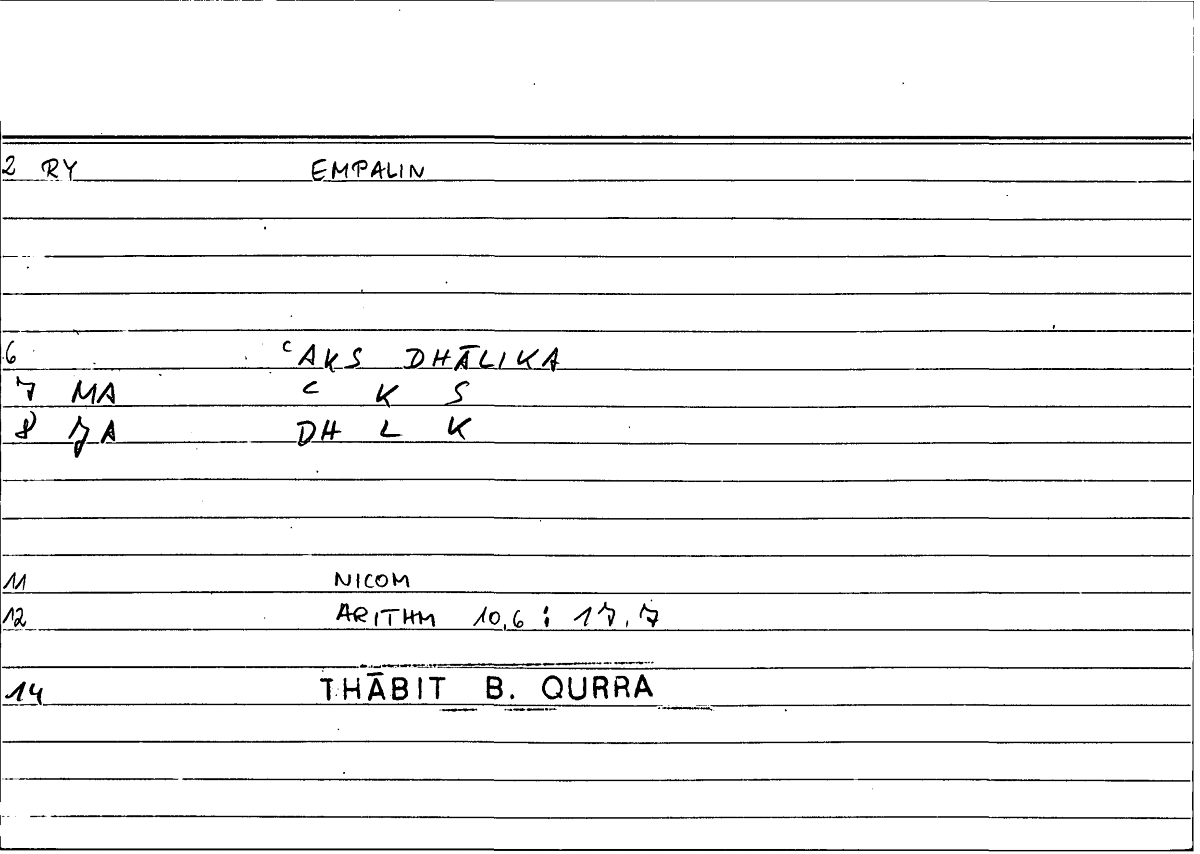 2 RY EMPALIN
6 ᶜAKS DHĀLIKA
7 MA ᶜ K S
8 JA DH L K
11 NICOM
12 ARITHM 10,6 : 17,7
14 THĀBIT B. QURRA